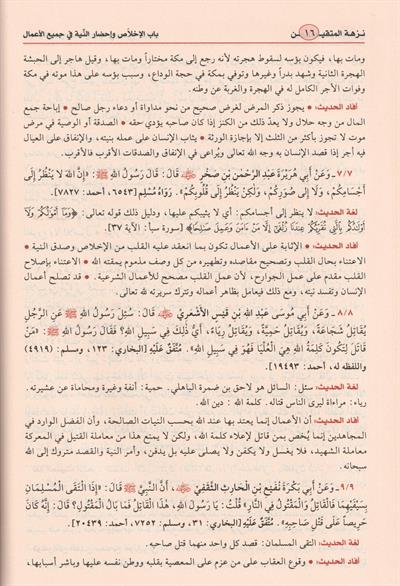 نـزهـة المتقيـن
١٦
باب الإخلاص وإحضار النّية في جميع الأعمال
ومات بها، فيكون بؤسه لسقوط هجرته لأنه رجع إلى مكة مختاراً ومات بها، وقيل هاجر إلى الحبشة
الهجرة الثانية وشهد بدراً وغيرها وتوفي بمكة في حجة الوداع، وسبب بؤسه على هذا موته في مكة
وفوات الأجر الكامل له في الهجرة والغربة عن وطنه.
أفاد الحديث: • يجوز ذكر المرض لغرض صحيح من نحو مداواة أو دعاء رجل صالح • إباحة جمع
المال من وجه حلال ولا يعدّ ذلك من الكنز إذا كان صاحبه يؤدي حقه • الصدقة أو الوصية في مرض
موت لا تجوز بأكثر من الثلث إلا بإجازة الورثة • يثاب الإنسان على عمله بنيته، والإنفاق على العيال
فيه أجر إذا قصد الإنسان به وجه الله تعالى ويُراعى في الإنفاق والصدقات الأقرب فالأقرب.
٧/٧ ـ وَعَنْ أَبي هُرَيْرَةَ عَبْدِ الرَّحْمٰنِ بْنِ صَخْرٍ ﷺ قَالَ: قَالَ رَسُولُ اللهِ ﷺ: «إنَّ اللهَ لَا يَنْظُرُ إلَى
أَجْسَامِكُمْ، وَلَا إلَى صُوَرِكُمْ، وَلَكِنْ يَنْظُرُ إلَى قُلُوبِكُمْ». رَوَاهُ مُسْلِم [٦٥٤٣، أحمد: ٧٨٢٧].
لغة الحديث: لا ينظر إلى أجسامكم: أي لا يثيبكم عليها، ودليل ذلك قوله تعالى: ﴿وَمَا أَمْوَالُكُمْ وَلَا
أَوْلَادُكُمْ بِالَّتِي تُقَرِّبُكُمْ عِندَنَا زُلْفَىٰ إِلَّا مَنْ ءَامَنَ وَعَمِلَ صَالِحًا﴾ [سورة سبأ: الآية ٣٧].
أفاد الحديث: • الإثابة على الأعمال تكون بما انعقد عليه القلب من الإخلاص وصدق النية •
الاعتناء بحال القلب وتصحيح مقاصده وتطهيره من كل وصف مذموم يمقته الله • الاعتناء بإصلاح
القلب مقدم على عمل الجوارح، لأن عمل القلب مصحح للأعمال الشرعية. • قد تصلح أعمال
الإنسان وتفسد نيته، ومع ذلك فيعامل بظاهر أعماله ونترك سريرته لله تعالى.
٨/٨ ـ وَعَنْ أَبي مُوسَى عَبْدِ اللهِ بْنِ قَيْسٍ الأَشْعَرِيِّ ﷺ قَالَ: سُئِلَ رَسُولُ اللهِ ﷺ عَنِ الرَّجُلِ
يُقَاتِلُ شَجَاعَةً، وَيُقَاتِلُ حَمِيَّةً، وَيُقَاتِلُ رِيَاءً، أَيُّ ذَلِكَ فِي سَبِيلِ اللهِ؟ فَقَالَ رَسُولُ اللهِ ﷺ: «مَنْ
قَاتَلَ لِتَكُونَ كَلِمَةُ اللهِ هِيَ العُلْيَا فَهُوَ فِي سَبِيلِ اللهِ». مُتَّفَقٌ عَلَيْهِ [البخاري: ١٢٣، ومسلم: (٤٩١٩)
واللفظه له، أحمد: ١٩٤٩٣].
لغة الحديث: سئل: السائل هو لاحق بن ضمرة الباهلي. حمية: أنفة وغيرة ومحاماة عن عشيرته.
رياء: مراءاة ليرى الناس قتاله. كلمة الله: دين الله.
أفاد الحديث: أن الأعمال إنما يعتد بها عند الله بحسب النيات الصالحة، وأن الفضل الوارد في
المجاهدين إنما يُخص بمن قاتل لإعلاء كلمة الله، ولكن لا يمنع هذا من معاملة القتيل في المعركة
معاملة الشهيد، فلا يغسل ولا يكفن ولا يصلى عليه بل يدفن، وأمر النية والقصد متروك إلى الله
سبحانه.
٩/٩ ـ وَعَنْ أَبي بَكْرَةَ نُفَيْعِ بْنِ الحَارِثِ الثَّقَفِيِّ ﷺ، أَنَّ النَّبِيَّ ﷺ قَالَ: «إذَا التَقَى المُسْلِمَانِ
بِسَيْفَيْهِمَا فَالْقَاتِلُ وَالمَقْتُولُ في النَّارِ». قُلْتُ: يَا رَسُولَ اللهِ، هَذَا القَاتِلُ فَمَا بَالُ المَقْتُولِ؟ قَالَ: إنَّهُ كَانَ
حَرِيصاً عَلَى قَتْلِ صَاحِبِهِ». مُتَّفَقٌ عَلَيْهِ [البخاري: ٣١، ومسلم: ٧٢٥٢، أحمد: ٢٠٤٣٩].
لغة الحديث: التقى المسلمان: قصد كل واحد منهما قتل صاحبه.
أفاد الحديث: • وقوع العقاب على من عزم على المعصية بقلبه ووطن نفسه عليها وباشر أسبابها،